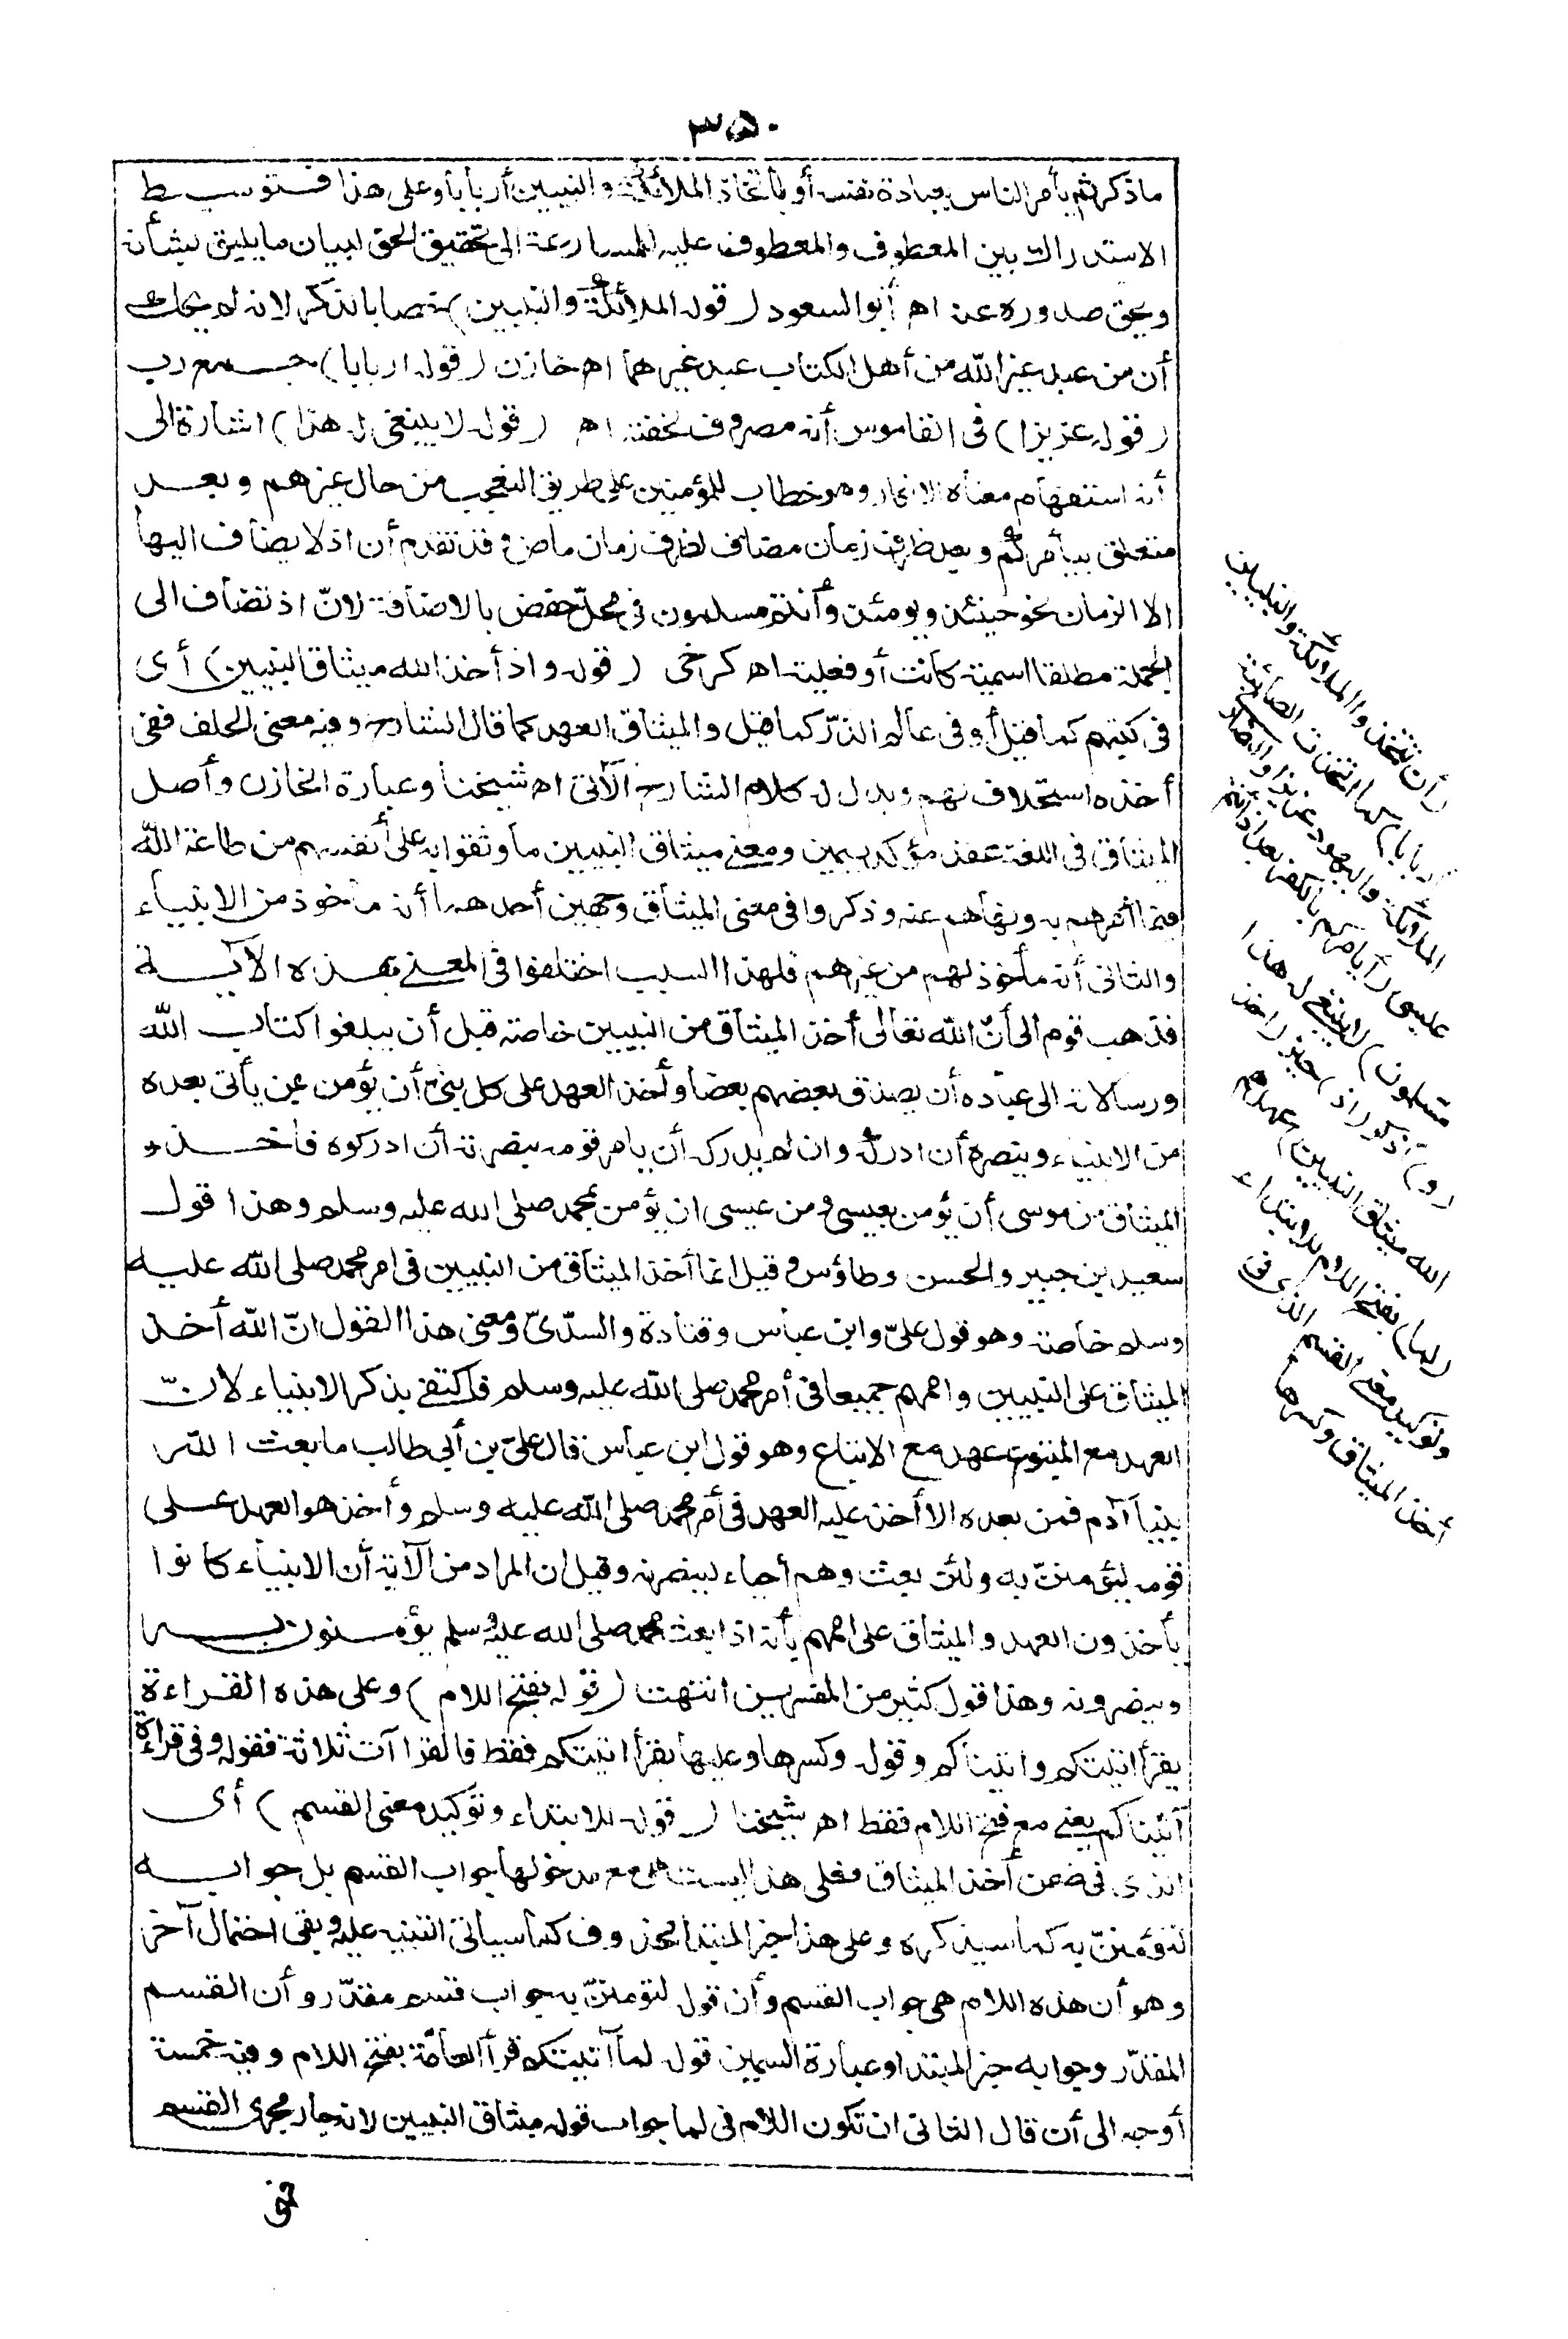 ٣٥٠
ما ذكر ثم يأمر الناس بعبادة نفسه أو باتخاذ الملائكة والنبيين أربابا وعلى هذا فتوسيط
الاستدراك بين المعطوف والمعطوف عليه للمسارعة الى تحقيق الحق لبيان ما يليق بشأنه
ويحق صدوره عنه اه أبو السعود (قوله الملائكة والنبيين) خصا بالذكر لانه لم يحك
أن من عبد غير الله من أهل الكتاب عبد غيرهما اه خازن (قوله اربابا) جمع رب
(قوله عزيرا) فى القاموس أنه مصروف لخفته اه (قوله لا ينبغى له هذا) اشارة الى
أنه استفهام معناه الانكار وهو خطاب للمؤمنين على طريق التعجب من حال غيرهم وبعد
متعلق بيأمركم وبعد ظرف زمان مضاف لظرف زمان ماض وقد تقدم أن اذ لا يضاف اليها
الا الزمان نحو حينئذ ويومئذ وأنتم مسلمون فى محل خفض بالاضافة لانّ اذ تضاف الى
الجملة مطلقا اسمية كانت أو فعلية اه كرخى (قوله واذ أخذ الله ميثاق النبيين) أى
فى كتبهم كما قيل أو فى عالم الذرّ كما قيل والميثاق العهد كما قال الشارح وفيه معنى الحلف ففى
أخذه استحلاف لهم ويدل له كلام الشارح الآتى اه شيخنا وعبارة الخازن وأصل
الميثاق فى اللغة عقد مؤكد بيمين ومعنى ميثاق النبيين ما وثقوا به على أنفسهم من طاعة الله
فيما أمرهم به ونهاهم عنه وذكروا فى معنى الميثاق وجهين أحدهما أنه مأخوذ من الانبياء
والثانى أنه مأخوذ لهم من غيرهم فلهذا السبب اختلفوا فى المعنى بهذه الآية
فذهب قوم الى أنّ الله تعالى أخذ الميثاق من النبيين خاصة قبل أن يبلغوا كتاب الله
ورسالاته الى عباده أن يصدق بعضهم بعضا وأخذ العهد على كل نبىّ أن يؤمن بمن يأتى بعده
من الانبياء وينصره أن ادركه وان لم يدركه أن يامر قومه بنصرته أن ادركوه فاخذ
الميثاق من موسى أن يؤمن بعيسى ومن عيسى ان يؤمن بمحمد صلى الله عليه وسلم وهذا قول
سعيد بن جبير والحسن وطاؤس وقيل انما أخذ الميثاق من النبيين فى امر محمد صلى الله عليه
وسلم خاصة وهو قول علىّ وابن عباس وقتادة والسدّىّ ومعنى هذا القول انّ الله أخذ
الميثاق على النبيين واممهم جميعا فى أمر محمد صلى الله عليه وسلم فاكتفى بذكر الانبياء لانّ
العهد مع المتبوع عهد مع الاتباع وهو قول ابن عباس قال على بن أبى طالب ما بعث الله
نبيا آدم فمن بعده الا أخذ عليه العهد فى أمر محمد صلى الله عليه وسلم وأخذ هو العهد على
قومه ليؤمننّ به ولئن بعث وهم أحياء لينصرنه وقيل ان المراد من الآية أن الانبياء كانوا
يأخذون العهد والميثاق على اممهم بأنه اذا بعث محمد صلى الله عليه وسلم يؤمنون به
وينصرونه وهذا قول كثير من المفسرين انتهت (قوله بفتح اللام) وعلى هذه القراءة
يقرأ اتيتكم واتيناكم وقوله وكسرها وعليها يقرأ اتيتكم فقط فالقراآت ثلاثة فقوله وفى قراءة
آتيناكم يعنى مع فتح اللام فقط اه شيخنا (قوله للابتداء وتوكيد معنى القسم) أى
الذى فى ضمن أخذ الميثاق فعلى هذا ليست هى مع مدخولها جواب القسم بل جوابه
لتؤمننّ به كما سيذكره وعلى هذا خبر المبتدا محذوف كما سيأتى التنبيه عليه وبقى احتمال آخر
وهو أن هذه اللام هى جواب القسم وأن قوله لتؤمننّ به جواب قسم مقدّر وأن القسم
المقدّر وجوابه خبر المبتدا وعبارة السمين قوله لما آتيتكم قرأ العامّة بفتح اللام وفيه خمسة
أوجه الى أن قال الثانى ان تكون اللام فى لما جواب قوله ميثاق النبيين لانه جار مجرى القسم
(أن تتخذوا الملائكة والنبيين
أربابا) كما اتخذت الصابئة
الملائكة واليهود عزيرا والنصارى
عيسى (أيأمركم بالكفر بعد اذ أنتم
مسلمون) لا ينبغى له هذا
(و) اذكر (اذ) حين (اخذ
الله ميثاق النبيين) عهدهم
(لما) بفتح اللام للابتداء
وتوكيد معنى القسم الذى فى
أخذ الميثاق وكسرها